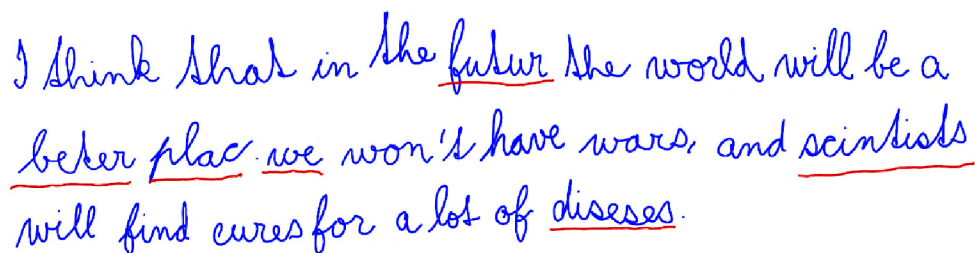 I think that in the futur the world will be a
beter plac. we won't have wars, and scintists
will find cures for a lot of diseses.